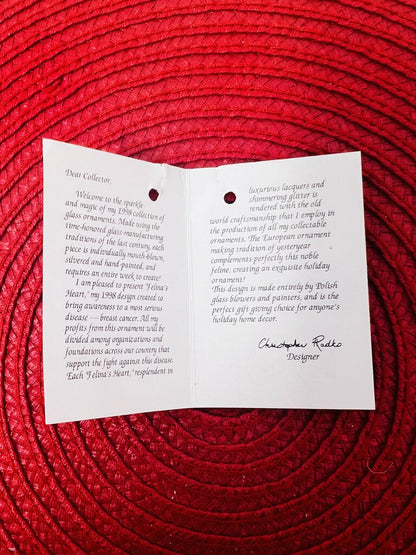 Dear Collector,
Welcome to the sparkle
and magic of my 1998 collection of
glass ornaments. Made using the
time-honored glass-manufacturing
traditions of the last century, each
piece is individually mouth-blown,
silvered and hand-painted, and
requires an entire week to create!
I am pleased to present 'Felina's
Heart,' my 1998 design created to
bring awareness to a most serious
disease — breast cancer. All my
profits from this ornament will be
divided among organizations and
foundations across our country that
support the fight against this disease.
Each 'Felina's Heart,' resplendent in
luxurious lacquers and
shimmering glitter is
rendered with the old
world craftsmanship that I employ in
the production of all my collectable
ornaments. The European ornament
making tradition of yesteryear
complements perfectly this noble
feline, creating an exquisite holiday
ornament!
This design is made entirely by Polish
glass blowers and painters, and is the
perfect gift giving choice for anyone's
holiday home decor.
Christopher Radko
Designer